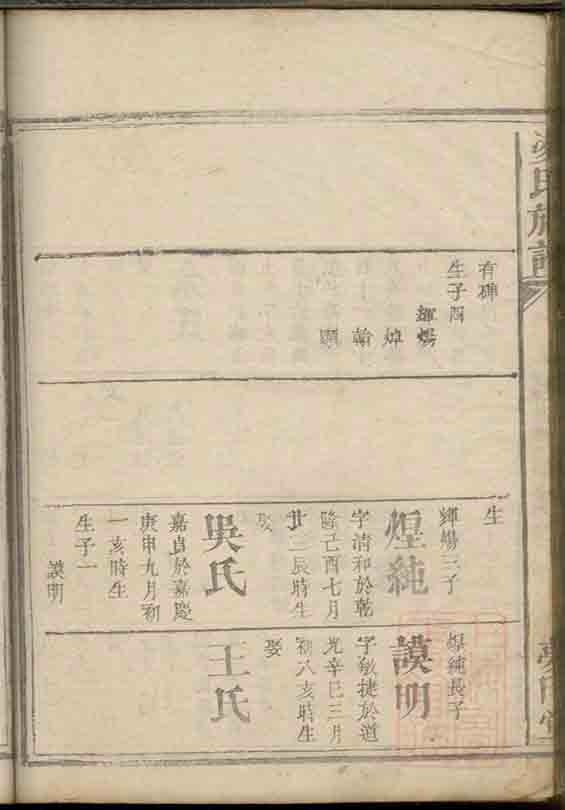 氏族譜
有碑
生子四
輝煬
煒
翰
顯
生
輝煬三子
煌純
字清和於乾
隆己酉七月
廿三辰時生
娶
吳氏
嘉貞於嘉慶
庚申九月初
一亥時生
生子一
謨明
煌純長子
謨明
字敏捷於道
光辛巳三月
初八亥時生
娶
王氏